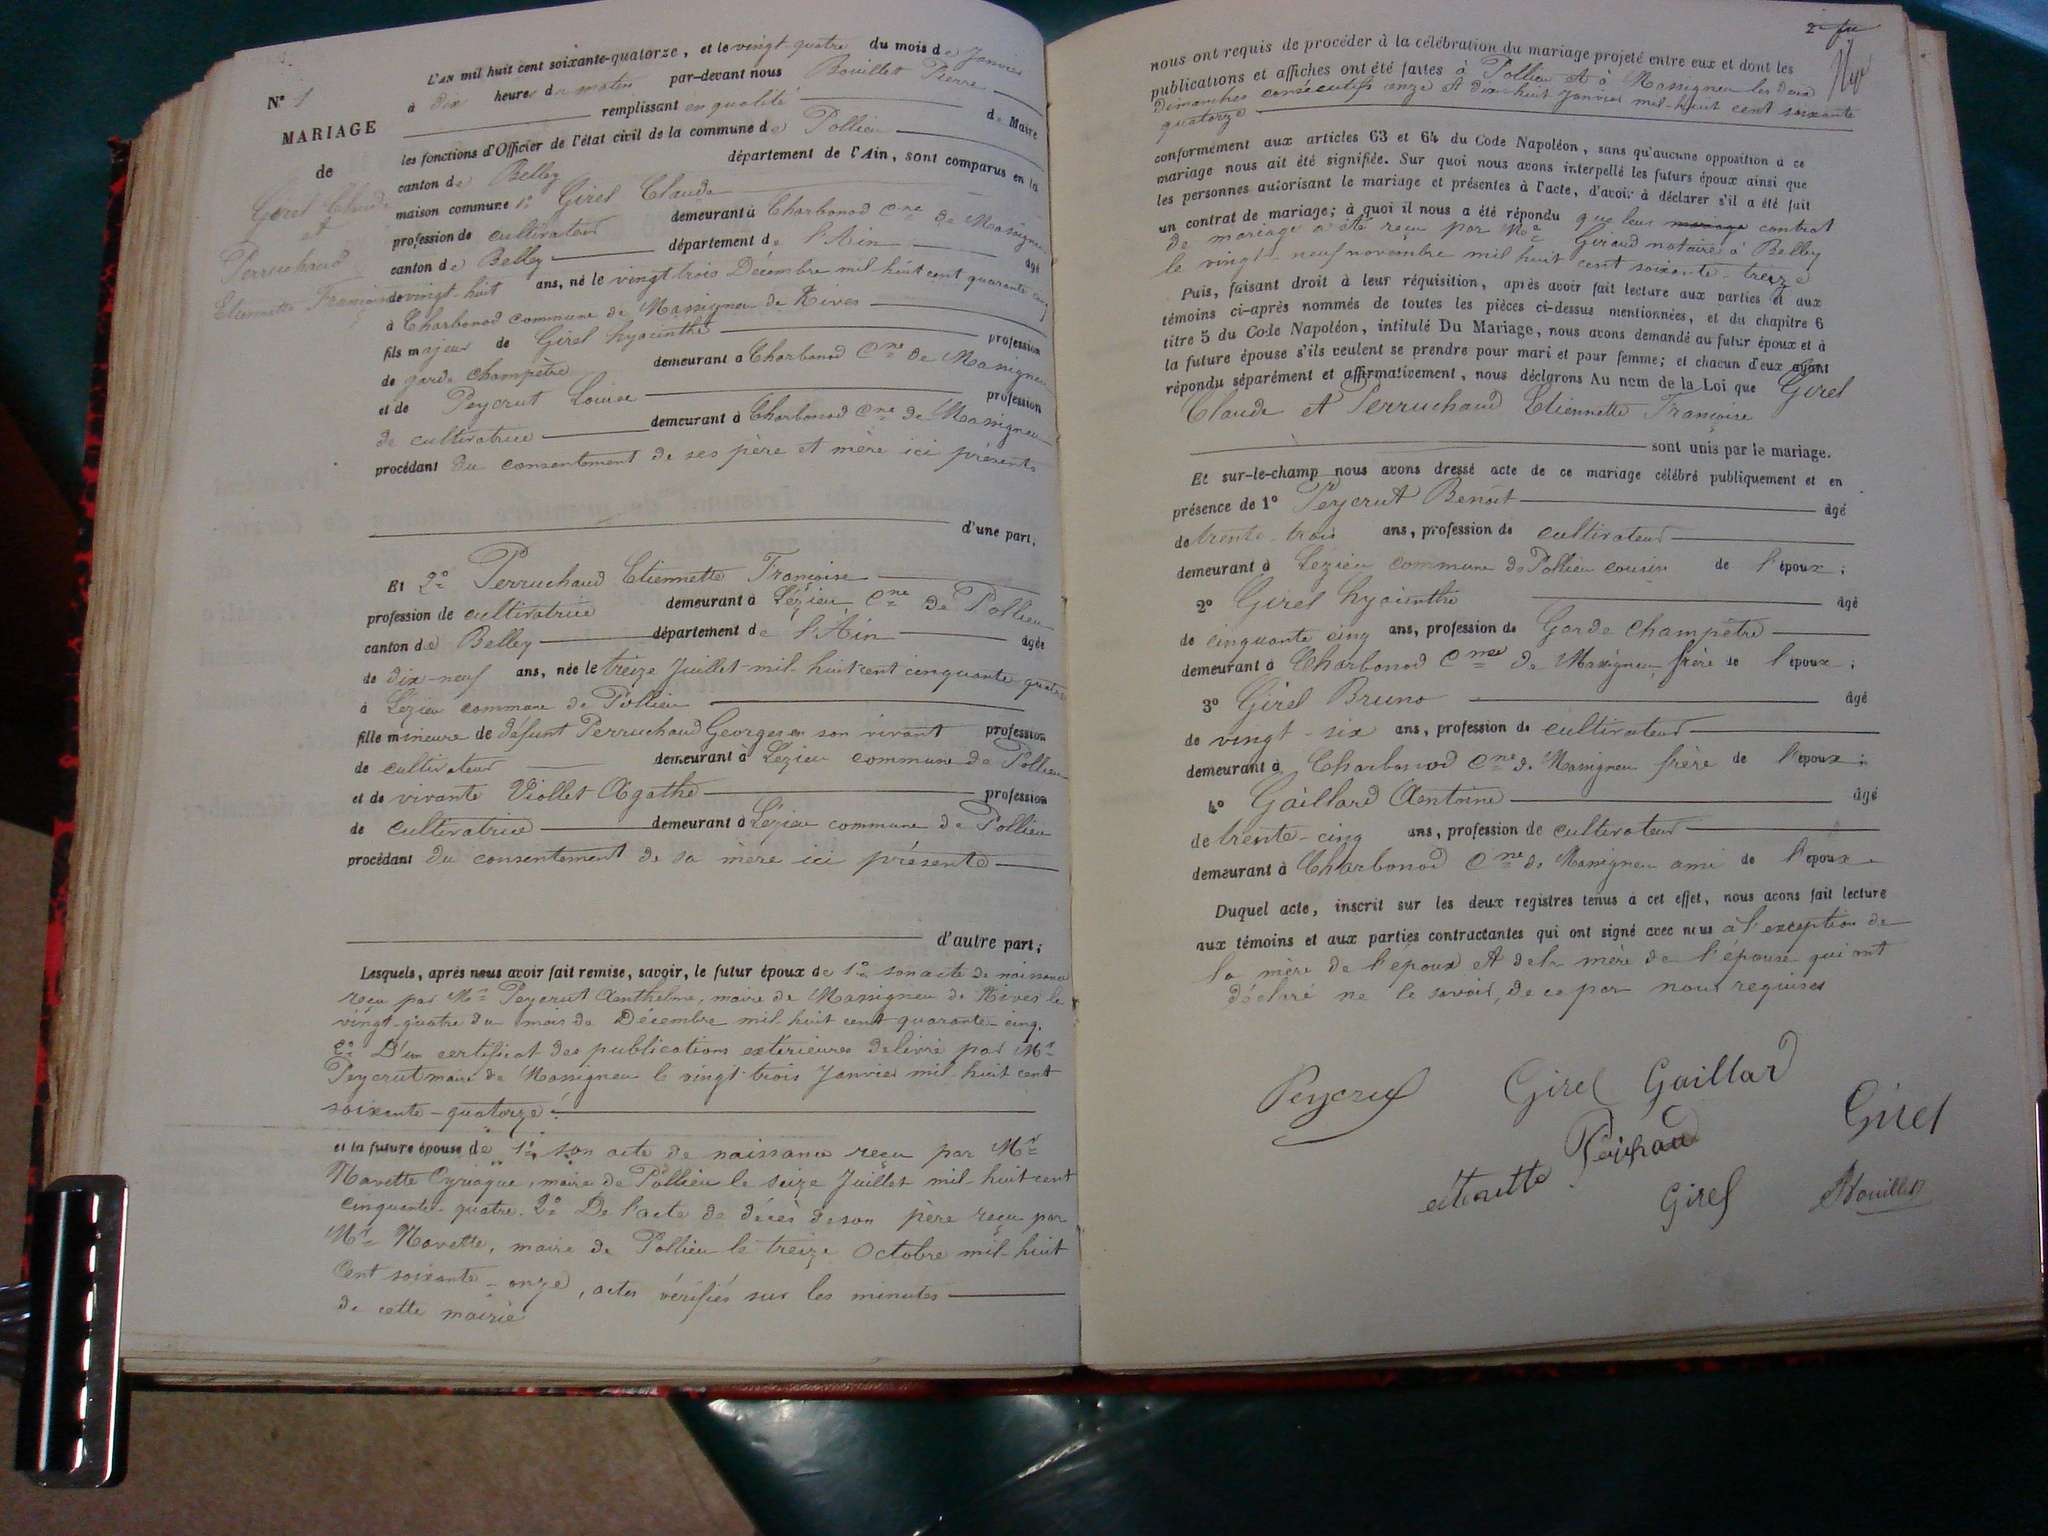 N° 1
MARIAGE
de
Girel Claude
et
Perruchaud
Etiennette Françoise
L'AN mil huit cent soixante-quatorze, et le vingt-quatre du mois de Janvier
à dix heures du matin par-devant nous Bouillet Pierre
remplissant en qualité de Maire
les fonctions d'Officier de l'état civil de la commune de Pollieu
canton de Belley département de l'Ain, sont comparus en la
maison commune 1° Girel Claude
profession de cultivateur demeurant à Charbonod Cne de Massignieu
canton de Belley département de l'Ain âgé
de vingt-huit ans, né le vingt trois Décembre mil huit cent quarante cinq
à Charbonod commune de Massigneu de Rives
fils majeur de Girel hyacinthe profession
de garde champêtre demeurant à Charbonod Cne de Massigneu
et de Peycrut Louise profession
de cultivatrice demeurant à Charbonod Cne de Massigneu
procédant du consentement de ses père et mère ici présents
d'une part.
Et 2° Perruchaud Etiennette Françoise
profession de cultivatrice demeurant à Lézieu Cne de Pollieu
canton de Belley département de l'Ain âgée
de dix-neuf ans, née le treize Juillet mil huit cent cinquante quatre
à Lézieu commune de Pollieu
fille mineure de défunt Perruchaud Georges en son vivant profession
de cultivateur demeurant à Lézieu commune de Pollieu
et de vivante Viollet Agathe profession
de cultivatrice demeurant à Lézieu commune de Pollieu
procédant du consentement de sa mère ici présente
d'autre part;
Lesquels, après nous avoir fait remise, savoir, le futur époux de 1° son acte de naissance
reçu par Mr Peycrut Anthelme, maire de Massigneu de Rives le
vingt-quatre du mois de Décembre mil huit cent quarante-cinq.
2° D'un certificat des publications extérieures délivré par Mr
Peycrut maire de Massigneu le vingt trois Janvier mil huit cent
soixante-quatorze
et la future épouse de 1° son acte de naissance reçu par Mr
Navette Cyriaque, maire de Pollieu le seize Juillet mil huit cent
cinquante-quatre. 2° De l'acte de décès de son père reçu par
Mr Navette, maire de Pollieu le treize Octobre mil huit
cent soixante-onze, actes vérifiés sur les minutes
de cette mairie
nous ont requis de procéder à la célébration du mariage projeté entre eux et dont les
publications et affiches ont été faites à Pollieu et à Massigneu les deux
dimanches consécutifs onze et dix-huit Janvier mil huit cent soixante
quatorze
conformément aux articles 63 et 64 du Code Napoléon, sans qu'aucune opposition à ce
mariage nous ait été signifiée. Sur quoi nous avons interpellé les futurs époux ainsi que
les personnes autorisant le mariage et présentes à l'acte, d'avoir à déclarer s'il a été fait
un contrat de mariage; à quoi il nous a été répondu que leur mariage contrat
de mariage a été reçu par Me Giraud notaire à Belley
le vingt-neuf novembre mil huit cent soixante-treize
Puis, faisant droit à leur réquisition, après avoir fait lecture aux parties et aux
témoins ci-après nommés de toutes les pièces ci-dessus mentionnées, et du chapitre 6
titre 5 du Code Napoléon, intitulé Du Mariage, nous avons demandé au futur époux et à
la future épouse s'ils veulent se prendre pour mari et pour femme; et chacun d'eux ayant
répondu séparément et affirmativement, nous déclarons Au nom de la Loi que Girel
Claude et Perruchaud Etiennette Françoise
sont unis par le mariage.
Et sur-le-champ nous avons dressé acte de ce mariage célébré publiquement et en
présence de 1° Peycrut Benoit âgé
de trente-trois ans, profession de cultivateur
demeurant à Lézieu commune de Pollieu cousin de l'époux;
2° Girel hyacinthe âgé
de cinquante cinq ans, profession de Garde champêtre
demeurant à Charbonod Cne de Massigneu frère de l'époux;
3° Girel Bruno âgé
de vingt-six ans, profession de cultivateur
demeurant à Charbonod Cne de Massigneu frère de l'époux;
4° Gaillard Antoine âgé
de trente-cinq ans, profession de cultivateur
demeurant à Charbonod Cne de Massigneu ami de l'époux
Duquel acte, inscrit sur les deux registres tenus à cet effet, nous avons fait lecture
aux témoins et aux parties contractantes qui ont signé avec nous à l'exception de
la mère de l'époux et de la mère de l'épouse qui ont
déclaré ne le savoir, de ce par nous requises
Peycrut Girel Gaillard
Girel
etienette Peruchau
Girel Bouillet